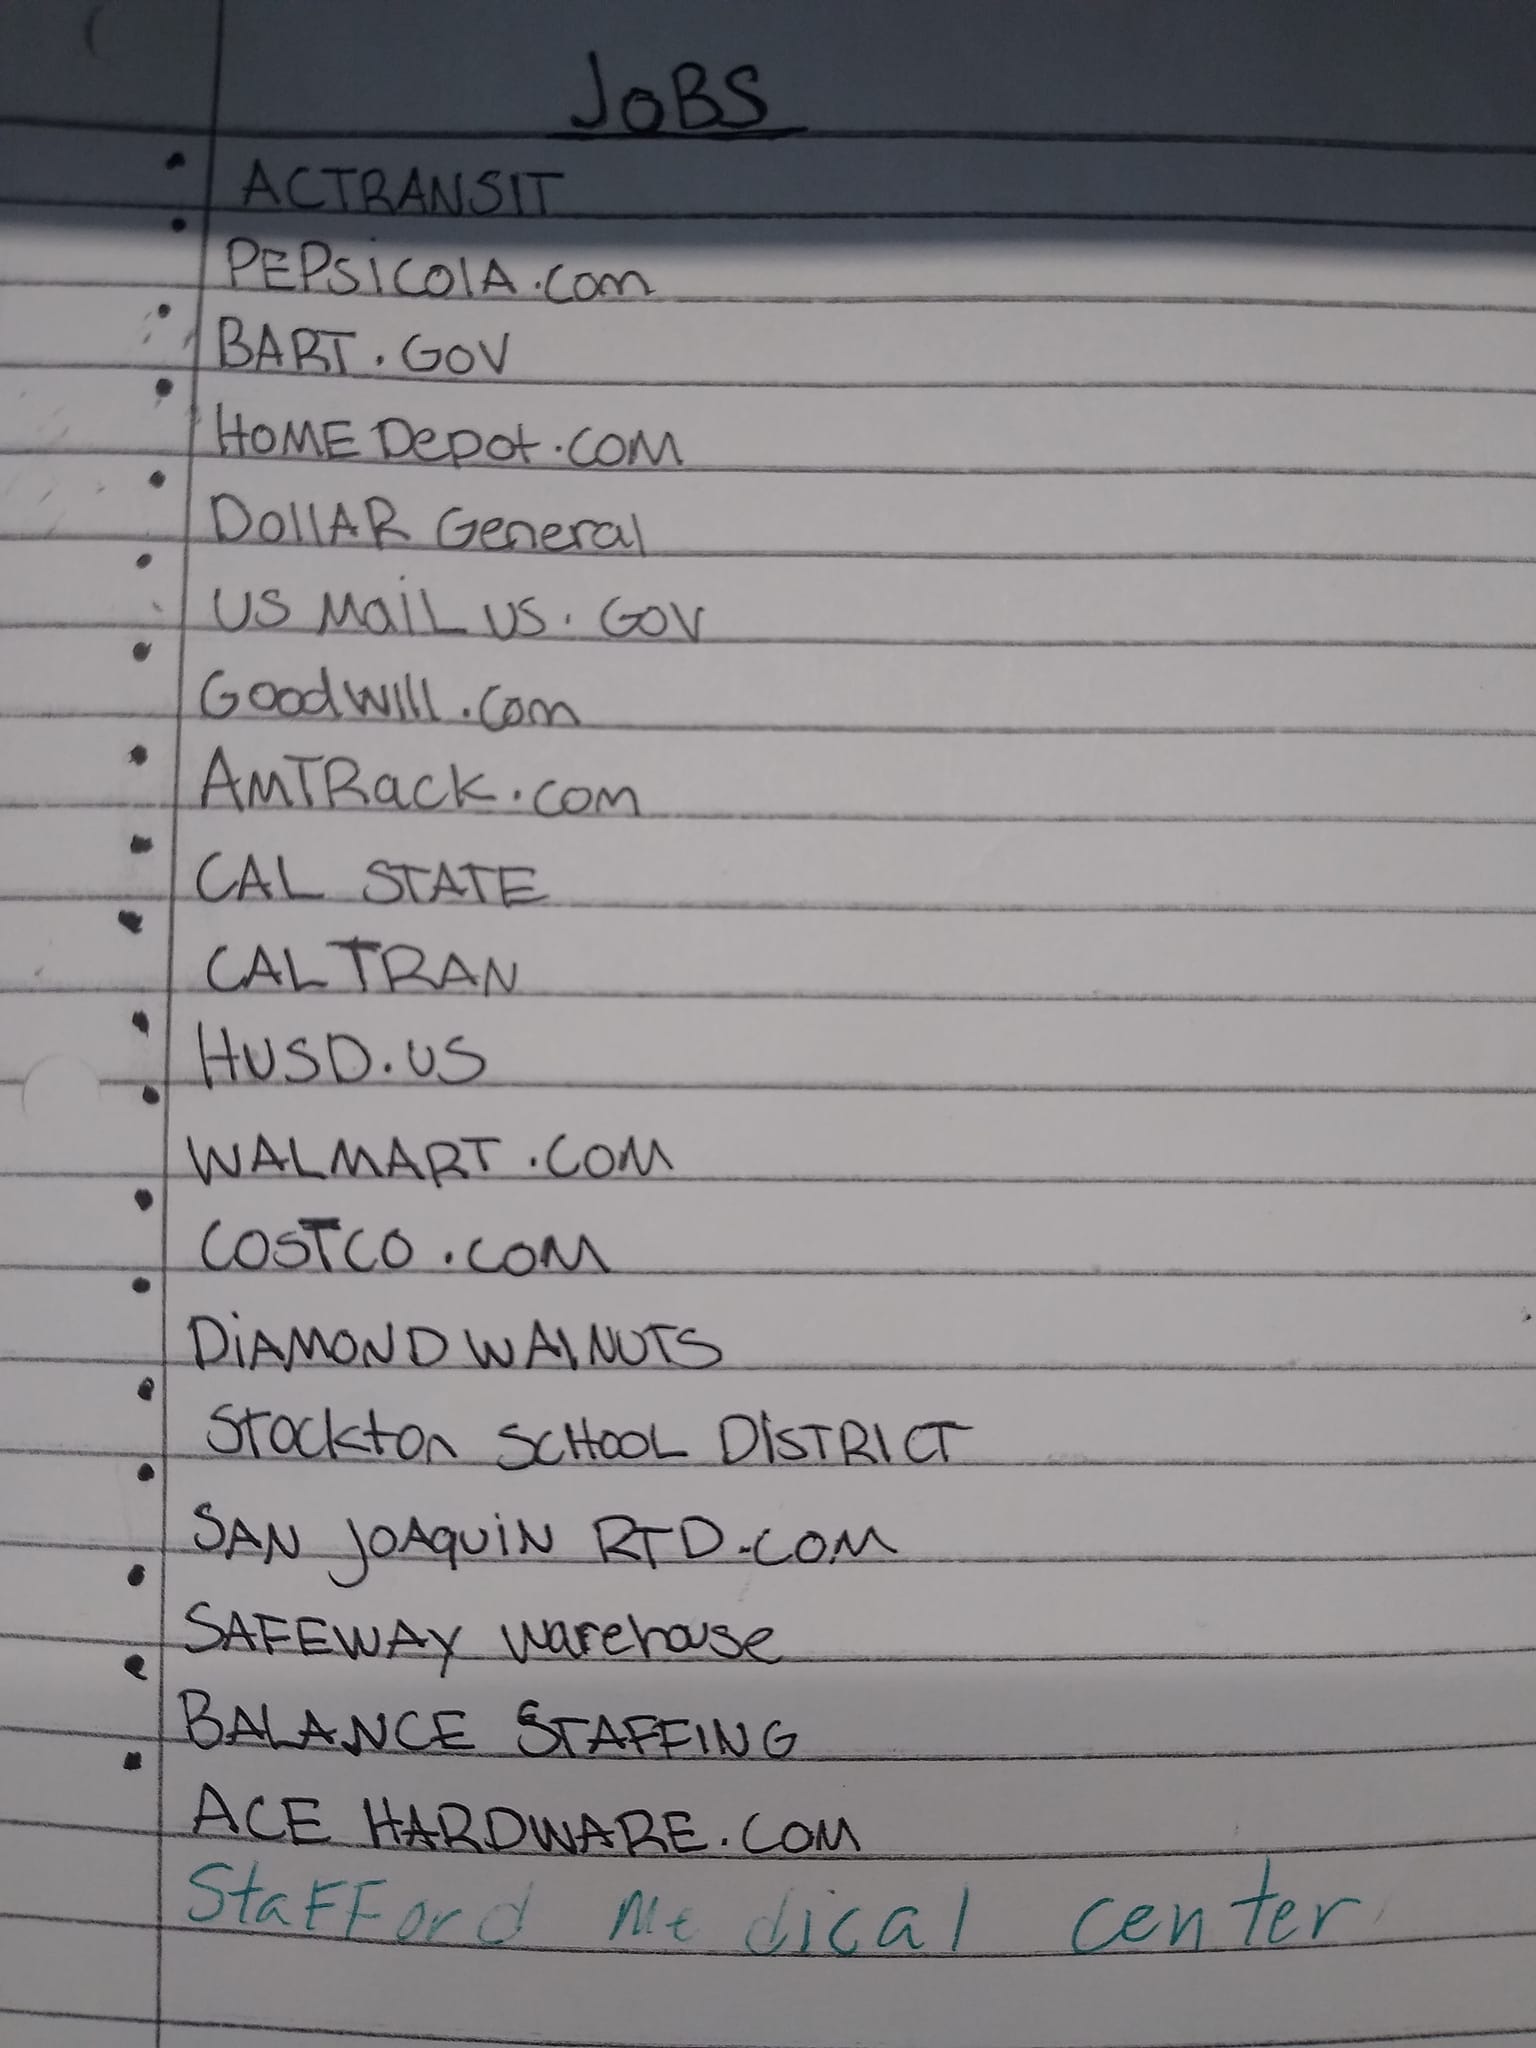 JOBS
ACTRANSIT
PEPSiCOlA.com
BART.GOV
HOME Depot.COM
DOllAR General
US MaiL US. GOV
Goodwill.com
AMTRack.com
CAL STATE
CALTRAN
HUSD.US
WALMART.COM
COSTCO.COM
DiAMOND WAlNUTS
Stockton SCHOOL DiSTRICT
SAN JOAquiN RTD.COM
SAFEWAY warehouse
BALANCE STAFFING
ACE HARDWARE.COM
StaFFord Medical center